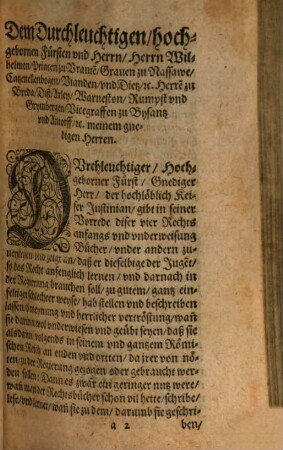 Dem Durchleuchtigen/hoch-
gebornen Fürsten vnd Herrn/Herrn Wil-
helmen/Printzen zu Vranië/Grauen zu Nassawe/
Catzenellenbogen/Vianden/vnd Dietz/ꝛc. Herrē zu
Breda/Dist/Arley/Warneston/Rumpst vnd
Grymbergen/Vicegraffen zu Bysantz
vnd Antorff/ꝛc. meinem gne-
digen Herren.
DVrchleuchtiger/Hoch-
geborner Fürst/Gnediger
Herr/der hochlöblich Kei-
ser Justinian/gibt in seiner
Vorrede diser vier Rechts
anfangs vnd vnderweisung
Bücher/vnder andern zu-
uernemen vnd zeigt an/daß er dieselbige der Jugēt/
so das Recht anfenglich lernen/vnd darnach in
der Regierung brauchen soll/zu gutem/gantz ein-
feltiger schlechter weyse/hab stellen vnd beschreiben
lassen/ hoffnung vnd herrlicher vertröstung/wañ
sie damit wol vnderwiesen vnd geübt seyen/daß sie
alsdenn volgends in seinem vnd gantzem Römi-
schen Reich an enden vnd orten/da jrer von nö-
ten/zu der Regierung gezogen oder gebraucht wer-
den sollen: Dann es zwar ein geringer nutz were/
wañ man der Rechtsbücher schon vil hette/schribe/
lese/vnd lernet/wañ sie zu dem/darumb sie geschri-
a 2 ben/